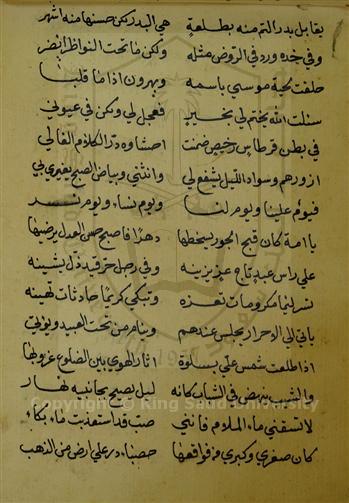 يقابل بدر التم منه بطلعة هي البدر لكن حسنها منه اشهر
وفي خده ورد في الروض مثله ولكن ما تحت النواظر انضر
حلفت بلحية موسى باسمه وبهرون اذا ما قلبا
سئلت الله يختم لي بخير فعجل لي ولكن في عيوني
في بطن قرطاس رخيص ضمنت احشاوه در الكلام الغالي
ازورهم وسواد الليل يشفع لي وانثني وبياض الصبح يغري بي
فيوم علينا ويوم لنا ويوم نساء ويوم نسر
يا امة كان قبح الجور يسخطها دهرا فاصبح حسن العدل يرضيها
على راس عبد تاج عز يزينه وفي رجل حر قيد ذل يشينه
تسر لئيما مكرمات تعزه وتبكي كريما حادثات تهينه
ياتي الى الاحرار يجلس عندهم وينام من تحت العبيد ويؤتى
اذا طلعت شمس علي بسلوة اثار الهوى بين الضلوع غروبها
والشيب ينهض في الشباب كانه ليل يصيح بجانبيه نهار
لا تسقني ماء الملام فانني صب قد استعذبت ماء بكاء
كان صغرى وكبرى من فواقعها حصباء در على ارض من الذهب
Copyright © King Saud University
1957